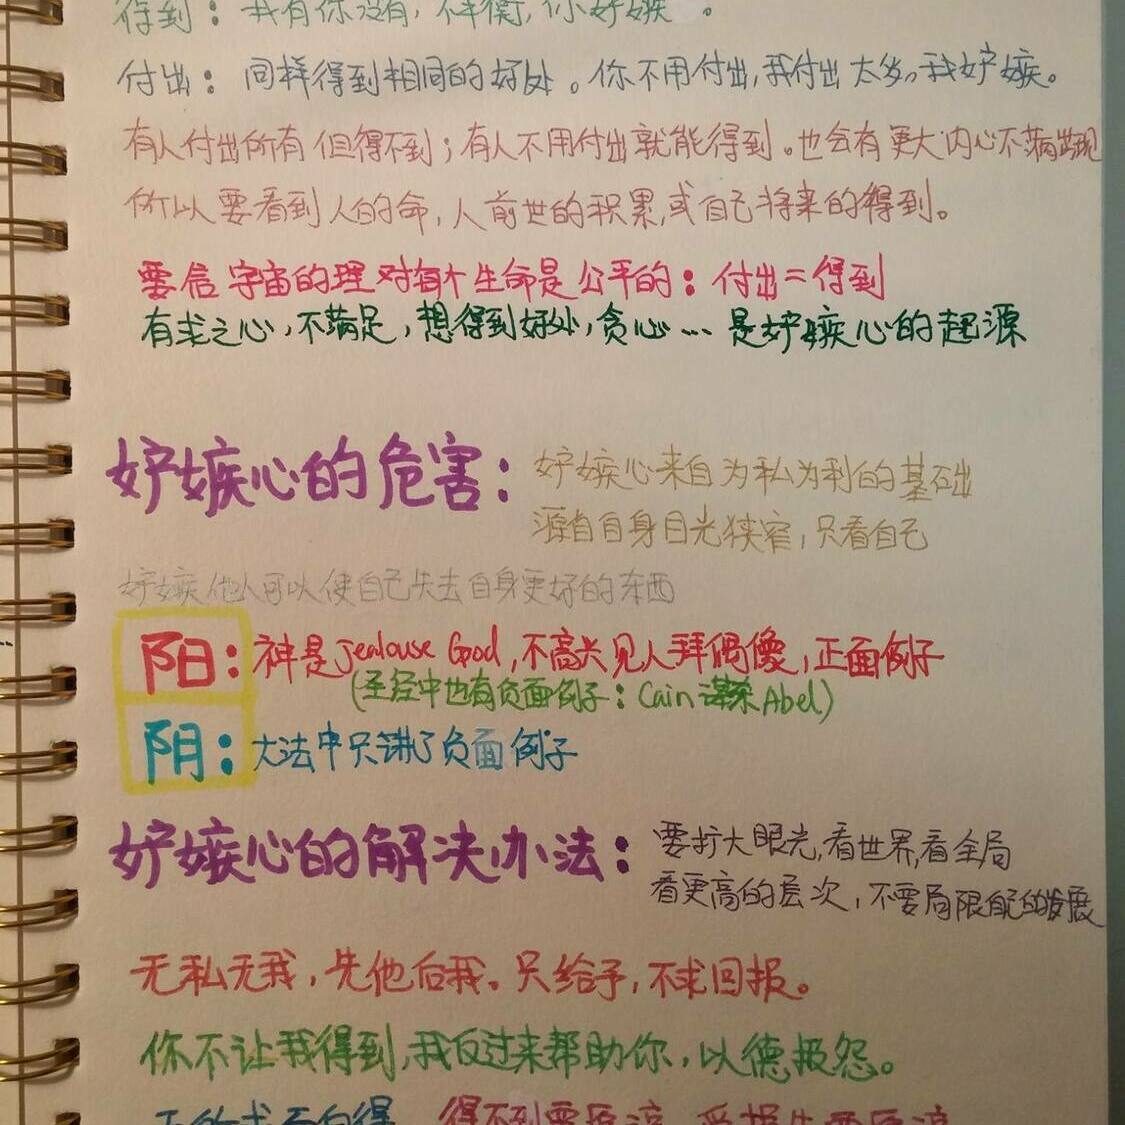 得到：我有你没有，不平衡，你妒嫉。
付出：同样得到相同的好处。你不用付出，我付出太多，我妒嫉。
有人付出所有但得不到；有人不用付出就能得到。也会有更大内心不满出现
所以要看到人的命，人前世的积累，或自己将来的得到。
要信宇宙的理对每个生命是公平的：付出＝得到
有求之心，不满足，想得到好处，贪心… 是妒嫉心的起源
妒嫉心的危害：妒嫉心来自为私为利的基础
源自自身目光狭窄，只看自己
妒嫉他人可以使自己失去自身更好的东西
阳：神是jealouse God，不高兴见人拜偶像，正面例子
(圣经中也有负面例子：Cain 谋杀 Abel)
阴：大法中只讲了负面例子
妒嫉心的解决办法：要扩大眼光，看世界，看全局
看更高的层次，不要局限自己的发展
无私无我，先他后我。只给予，不求回报。
你不让我得到，我反过来帮助你，以德报怨。
得不到要原谅